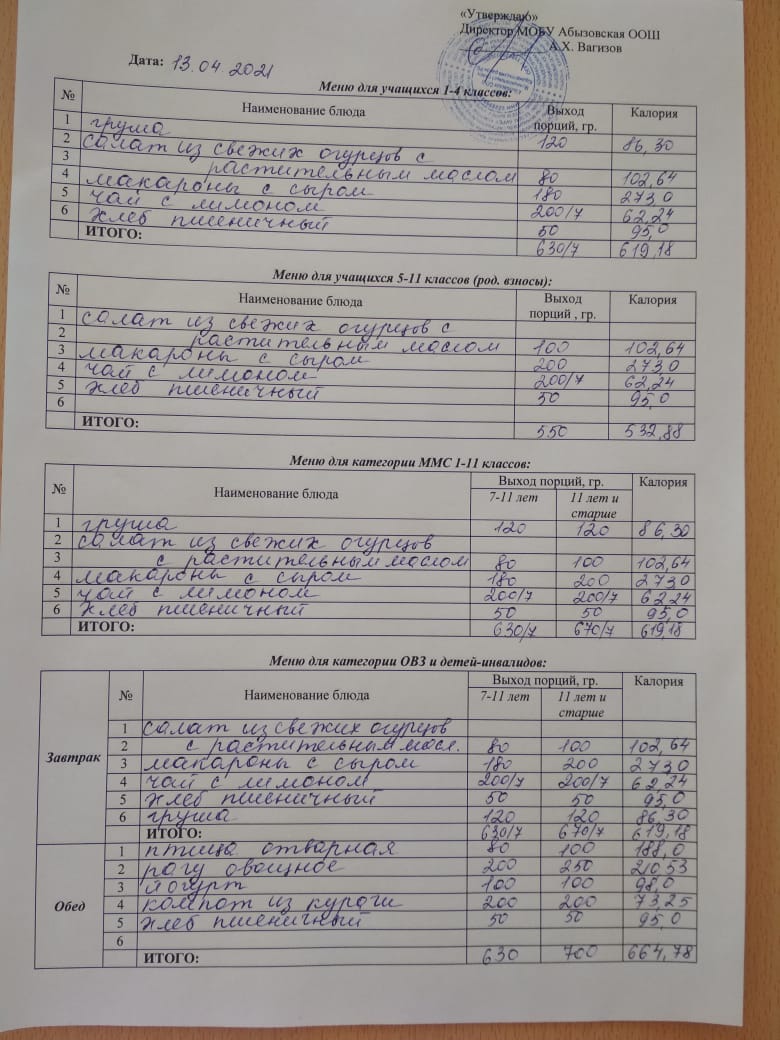 «Утверждаю»
Директор МОБУ Абызовская ООШ
А.Х. Вагизов
Дата: 13.04.2021
Меню для учащихся 1-4 классов:
№ Наименование блюда Выход порций, гр. Калория
1 груша 120 86,30
2 салат из свежих огурцов с
3 растительным маслом 80 102,64
4 макароны с сыром 180 273,0
5 чай с лимоном 200/7 62,24
6 хлеб пшеничный 50 95,0
ИТОГО: 630/7 619,18
Меню для учащихся 5-11 классов (род. взносы):
№ Наименование блюда Выход порций , гр. Калория
1 салат из свежих огурцов с
2 растительным маслом 100 102,64
3 макароны с сыром 200 273,0
4 чай с лимоном 200/7 62,24
5 хлеб пшеничный 50 95,0
6
ИТОГО: 550 532,88
Меню для категории ММС 1-11 классов:
№ Наименование блюда Выход порций, гр. Калория
7-11 лет 11 лет и старше
1 груша 120 120 86,30
2 салат из свежих огурцов
3 с растительным маслом 80 100 102,64
4 макароны с сыром 180 200 273,0
5 чай с лимоном 200/7 200/7 62,24
6 хлеб пшеничный 50 50 95,0
ИТОГО: 630/7 670/7 619,18
Меню для категории ОВЗ и детей-инвалидов:
№ Наименование блюда Выход порций, гр. Калория
7-11 лет 11 лет и старше
Завтрак
1 салат из свежих огурцов
2 с растительным масл. 80 100 102,64
3 макароны с сыром 180 200 273,0
4 чай с лимоном 200/7 200/7 62,24
5 хлеб пшеничный 50 50 95,0
6 груша 120 120 86,30
ИТОГО: 630/7 670/7 619,18
Обед
1 птица отварная 80 100 188,0
2 рагу овощное 200 250 210,53
3 йогурт 100 100 98,0
4 компот из кураги 200 200 73,25
5 хлеб пшеничный 50 50 95,0
6
ИТОГО: 630 700 664,78